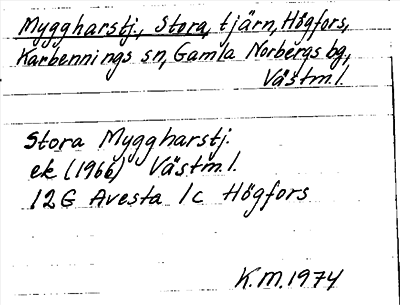 Myggharstj., Stora, tjärn, Högfors,
Karbennings sn, Gamla Norbergs bg,
Västm.l.
Stora Myggharstj.
ek (1966) Västm.l.
12G Avesta 1c Högfors
K.M. 1974